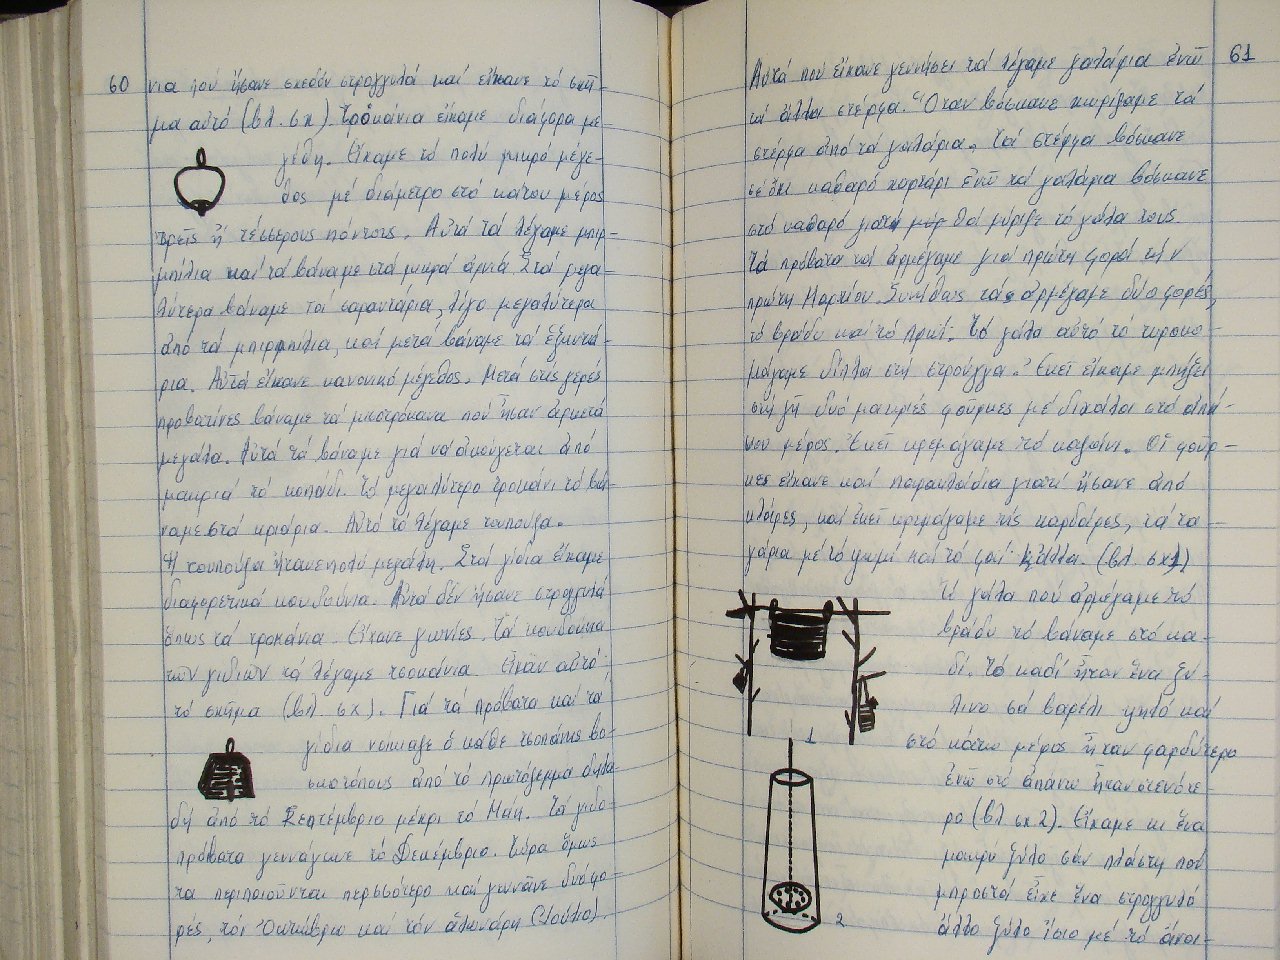 60
νια πού ἤσανε σχεδόν στρογγυλά καί εἴχανε τό σχῆ-
μα αὐτό (βλ. σχ). Τροκάνια εἴχαμε διάφορα με
γέθη. Εἴχαμε τό πολύ μικρό μέγε-
θος μέ διάμετρο στό κάτου μέρος
τρεῖς ἤ τέσσερους πόντους. Αὐτά τά λέγαμε μπιρ-
μπίλια καί τά βάναμε στά μικρά ἀρνιά. Στά μεγα-
λύτερα βάναμε τά σαραντάρια, λίγο μεγαλύτερα
ἀπό τά μπιρμπίλια, καί μετά βάναμε τά ἑξηντά-
ρια. Αὐτά εἴχανε κανονικό μέγεθος. Μετά στίς γερές
προβατίνες βάναμε τά μιστρόκανα πού ἦσαν ἀρκετά
μεγάλα. Αὐτά τά βάναμε γιά νά ἀκούγεται ἀπό
μακριά τό κοπάδι. Τό μεγαλύτερο τροκάνι τό βά-
ναμε στά κριάρια. Αὐτό τό λέγαμε τουπούζα.
Ἡ τουπούζα ἤτανε πολύ μεγάλη. Στά γίδια εἴχαμε
διαφορετικά κουδούνια. Αὐτά δέν ἤσανε στρογγυλά
ὅπως τά τροκάνια. Εἴχανε γωνίες. Τά κουδούνια
τῶν γιδιῶν τά λέγαμε τσοκάνια. Εἶχαν αὐτό
τό σχῆμα (βλ. σχ). Γιά τά πρόβατα καί τά
γίδια νοίκιαζε ὁ κάθε τσοπάνης βο-
σκοτόπους ἀπό τό πρωτόγεμμα δηλα-
δή ἀπό τό Σεπτέμβριο μέχρι τό Μάη. Τά γιδο-
πρόβατα γεννάγανε τό Δεκέμβριο. Τώρα ὅμως
τα περιποιοῦνται περισσότερο καί γεννᾶνε δυό φο-
ρές, τόν Ὀκτώβριο καί τόν ἁλωνάρη (Ἰούλιο).
61
Αὐτά πού εἴχανε γεννήσει τά λέγαμε γαλάρια ἐνῶ
τά ἄλλα στέρφα. Ὅταν βόσκανε χωρίζαμε τά
στέρφα ἀπό τά γαλάρια. Τά στέρφα βόσκανε
σέ ὄχι καθαρό χορτάρι ἐνῶ τά γαλάρια βόσκανε
στό καθαρό γιατί θά μύριζε τό γάλα τους.
Τά πρόβατα τά ἀρμέγαμε γιά πρώτη φορά τήν
πρώτη Μαρτίου. Συνήθως τά ἀρμέγαμε δύο φορές,
τό βράδυ καί τό πρωί. Τό γάλα αὐτό τό τυροκο-
μάγαμε δίπλα στή στρούγγα. Ἐκεῖ εἴχαμε μπήξει
στή γῆ δυό μακριές φοῦρκες μέ διχάλα στό ἀπά-
νου μέρος. Ἐκεῖ κρεμάγαμε τό καζάνι. Οἱ φοῦρ-
κες εἴχανε καί παρακλάδια γιατί ἤσανε ἀπό
κλάρες, καί ἐκεῖ κρεμάγαμε τίς καρδάρες, τά τα-
γάρια μέ τό ψωμί καί τό φαΐ κ' ἄλλα. (βλ. σχ 1)
Τό γάλα πού ἀρμέγαμε τό
βράδυ τό βάναμε στό κα-
δί. Τό καδί ἦταν ἕνα ξύ-
λινο σά βαρέλι ψηλό καί
στό κάτω μέρος ἦταν φαρδύτερο
ἐνῶ στό ἀπάνω ἦταν στενότε-
ρο (βλ σχ 2). Εἴχαμε κι ἕνα
μακρύ ξύλο σάν πλάστη πού
μπροστά εἶχε ἕνα στρογγυλό
ἄλλο ξύλο ἴσιο μέ τό ἄνοι-
1
2